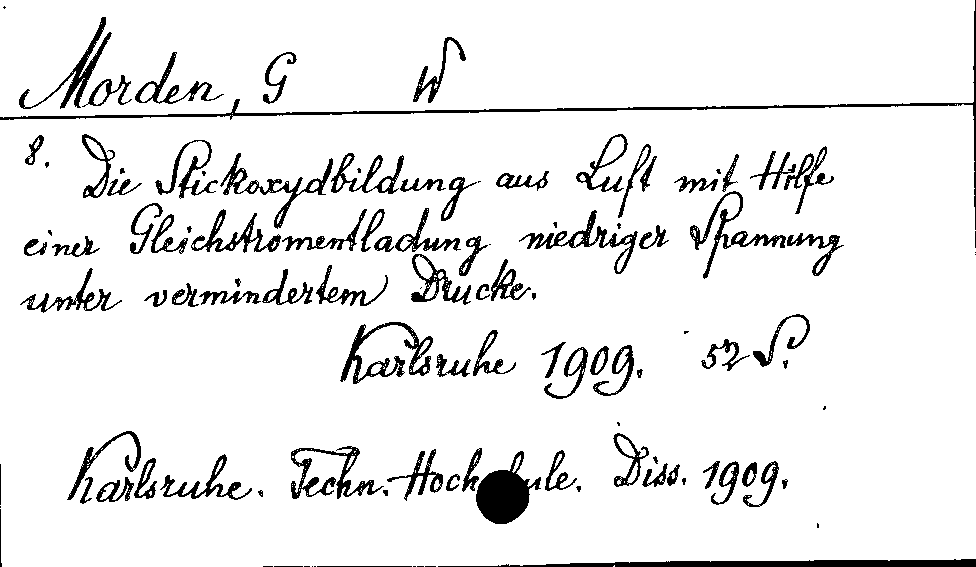 Morden, G W
8. Die Stickoxydbildung aus Luft mit Hilfe
einer Gleichstromentladung niedriger Spannung
unter vermindertem Drucke.
Karlsruhe 1909. 52 S.
Karlsruhe. Techn. Hochschule. Diss. 1909.